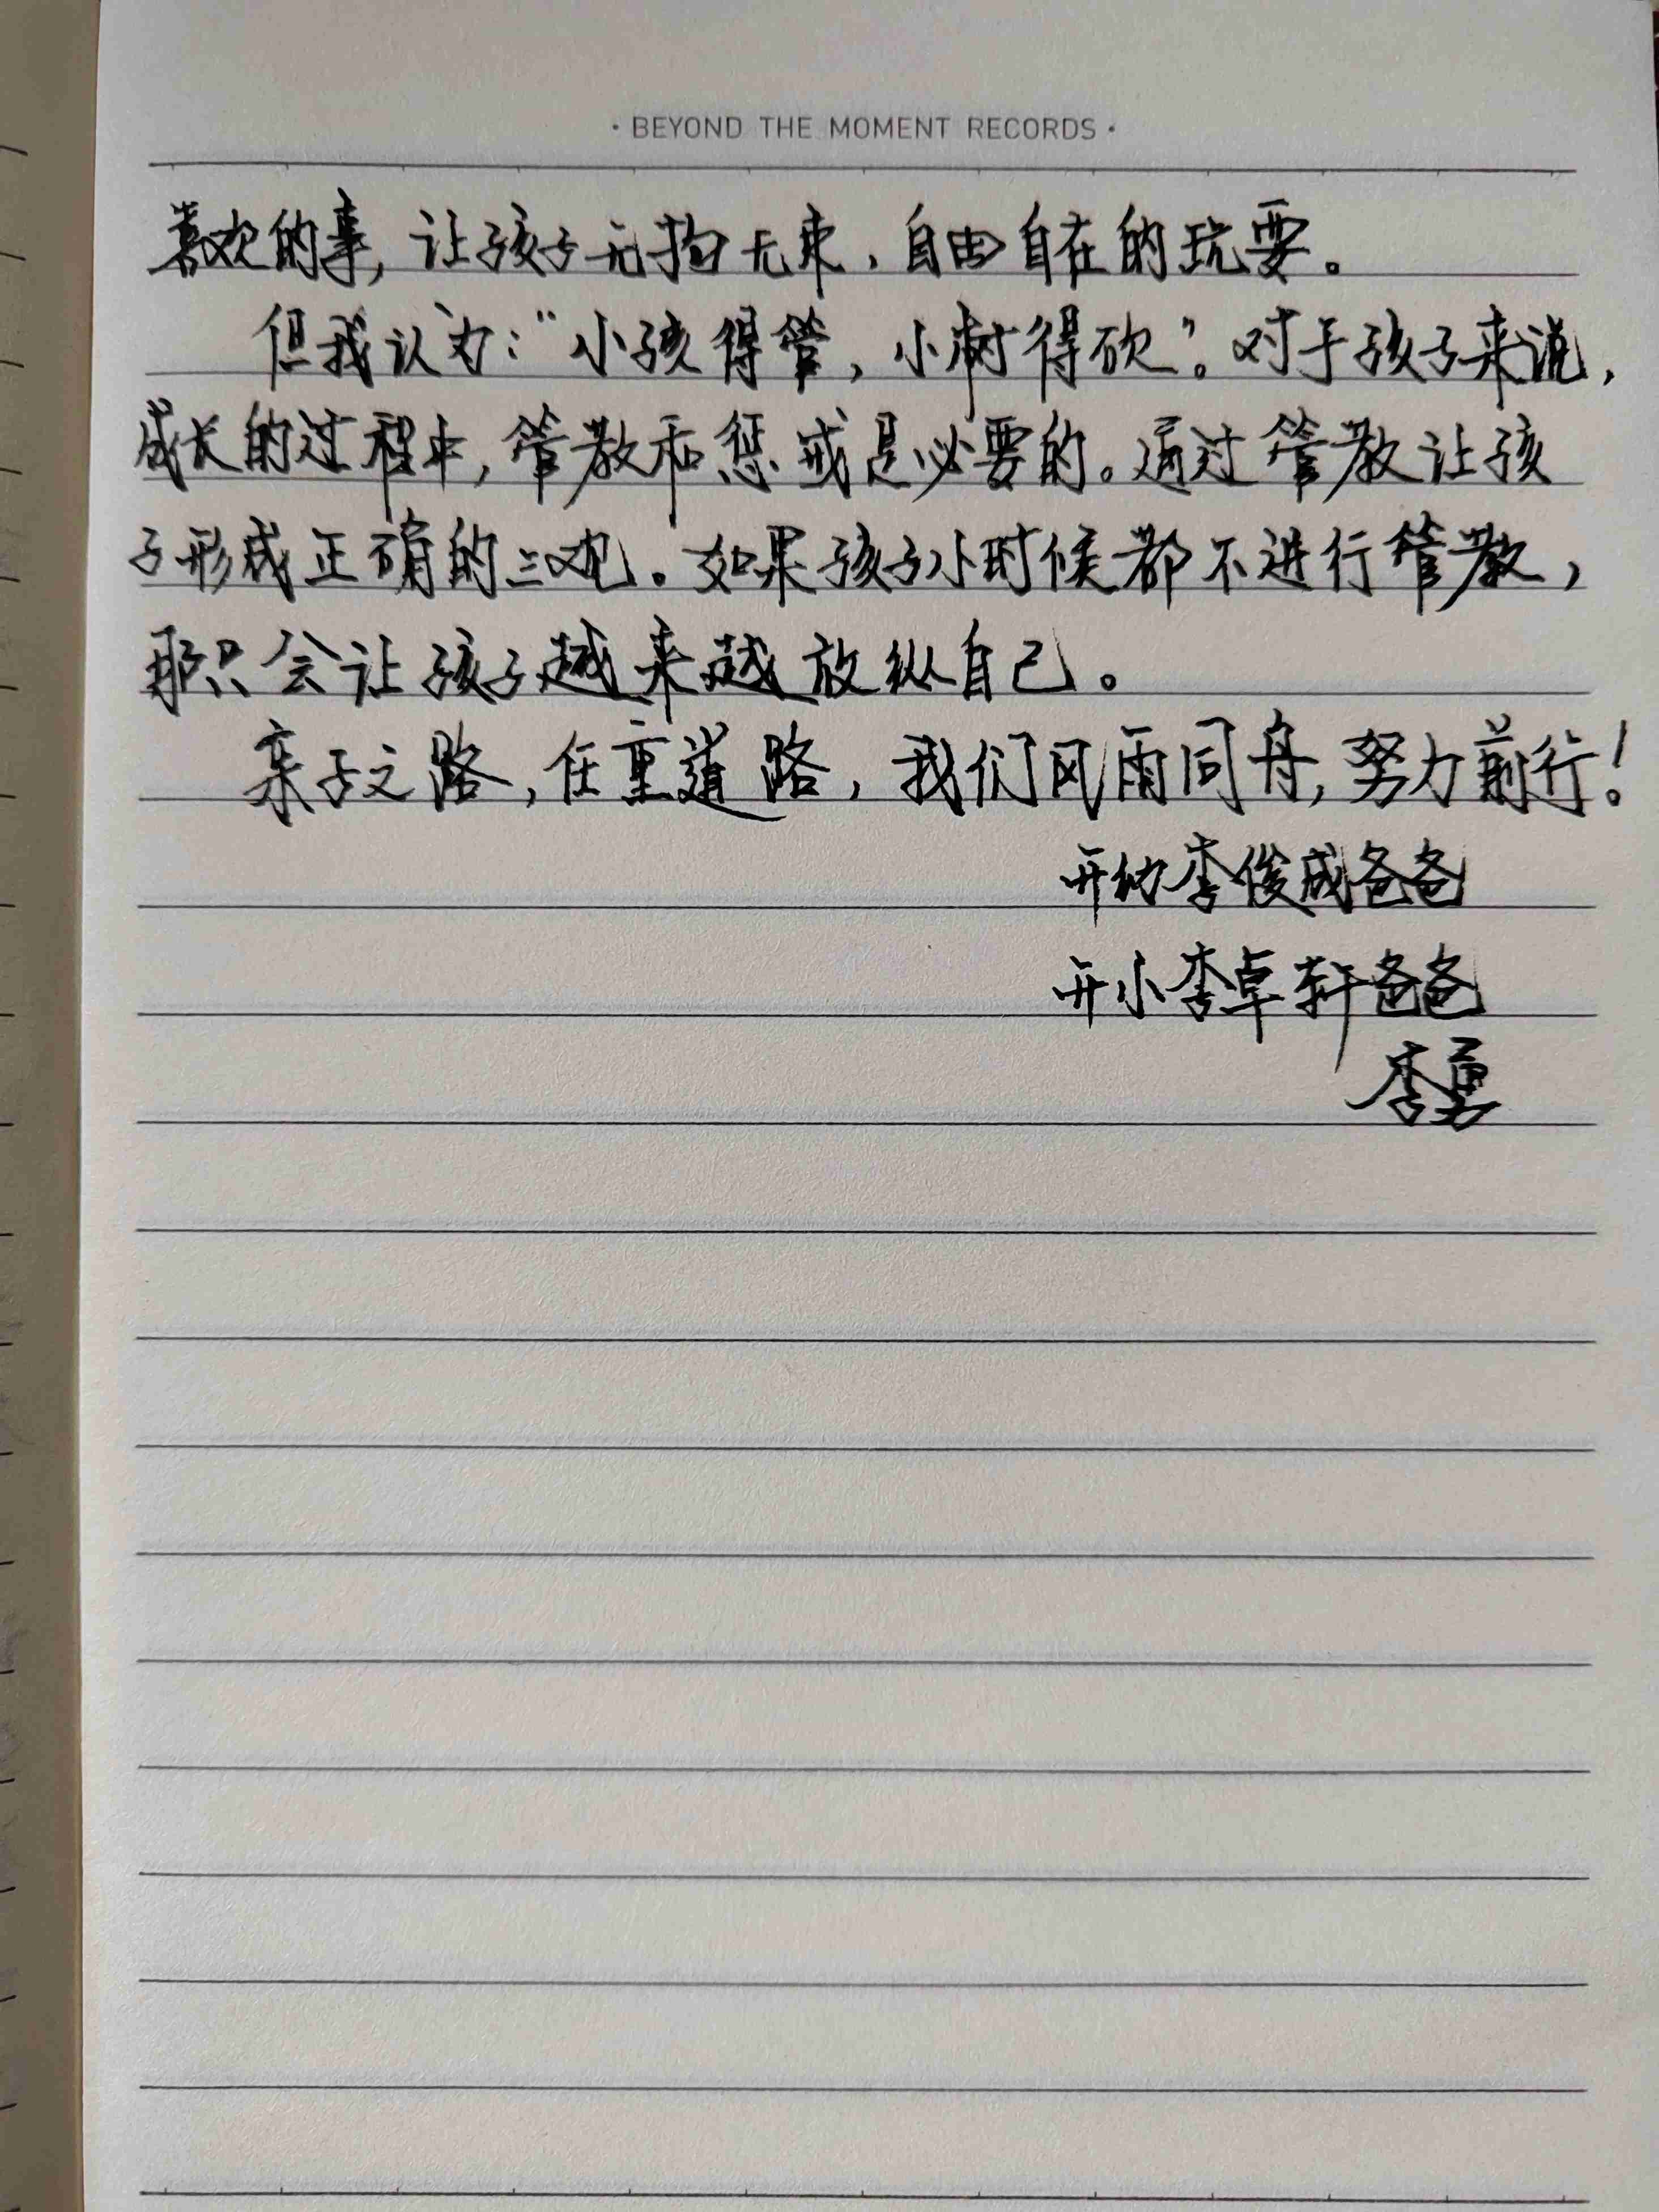 · BEYOND THE MOMENT RECORDS ·
喜欢的事，让孩子无拘无束，自由自在的玩耍。
但我认为：“小孩得管，小树得砍”。对于孩子来说，
成长的过程中，管教和惩戒是必要的。通过管教让孩
子形成正确的三观。如果孩子小时候都不进行管教，
那只会让孩子越来越放纵自己。
亲子之路，任重道路，我们风雨同舟，努力前行！
开幼李俊成爸爸
开小李卓轩爸爸
李勇